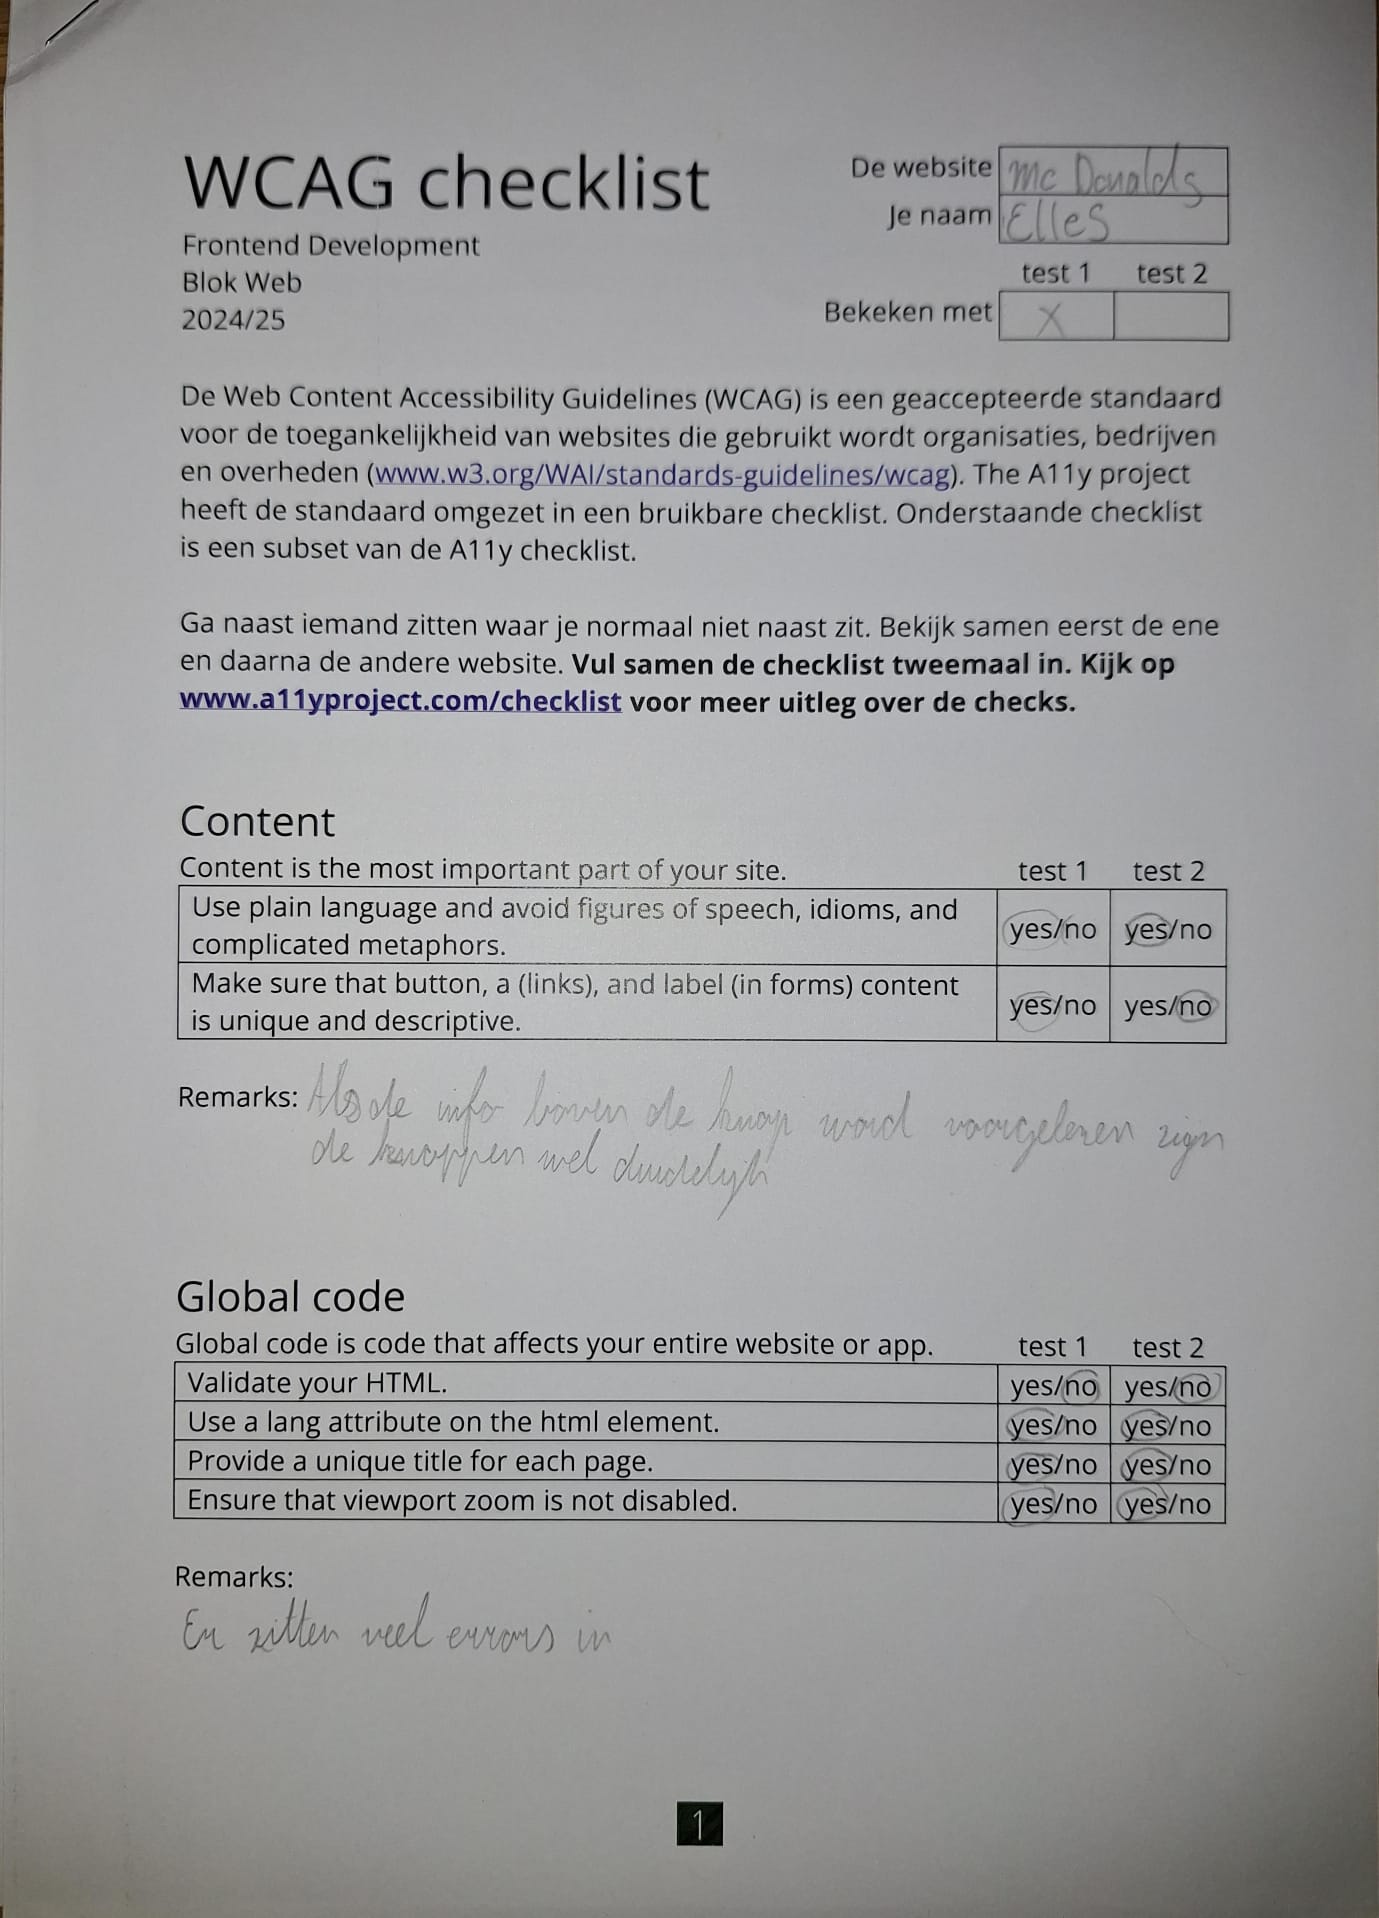 WCAG checklist
Frontend Development
Blok Web
2024/25
De website Mc Donalds
Je naam Elles
test 1 test 2
Bekeken met X
De Web Content Accessibility Guidelines (WCAG) is een geaccepteerde standaard
voor de toegankelijkheid van websites die gebruikt wordt organisaties, bedrijven
en overheden (www.w3.org/WAI/standards-guidelines/wcag). The A11y project
heeft de standaard omgezet in een bruikbare checklist. Onderstaande checklist
is een subset van de A11y checklist.
Ga naast iemand zitten waar je normaal niet naast zit. Bekijk samen eerst de ene
en daarna de andere website. Vul samen de checklist tweemaal in. Kijk op
www.a11yproject.com/checklist voor meer uitleg over de checks.
Content
Content is the most important part of your site. test 1 test 2
Use plain language and avoid figures of speech, idioms, and
complicated metaphors. yes/no yes/no
Make sure that button, a (links), and label (in forms) content
is unique and descriptive. yes/no yes/no
Remarks: Als de info boven de knop word voorgelezen zijn
de knoppen wel duidelijk
Global code
Global code is code that affects your entire website or app. test 1 test 2
Validate your HTML. yes/no yes/no
Use a lang attribute on the html element. yes/no yes/no
Provide a unique title for each page. yes/no yes/no
Ensure that viewport zoom is not disabled. yes/no yes/no
Remarks:
Er zitten veel errors in
1